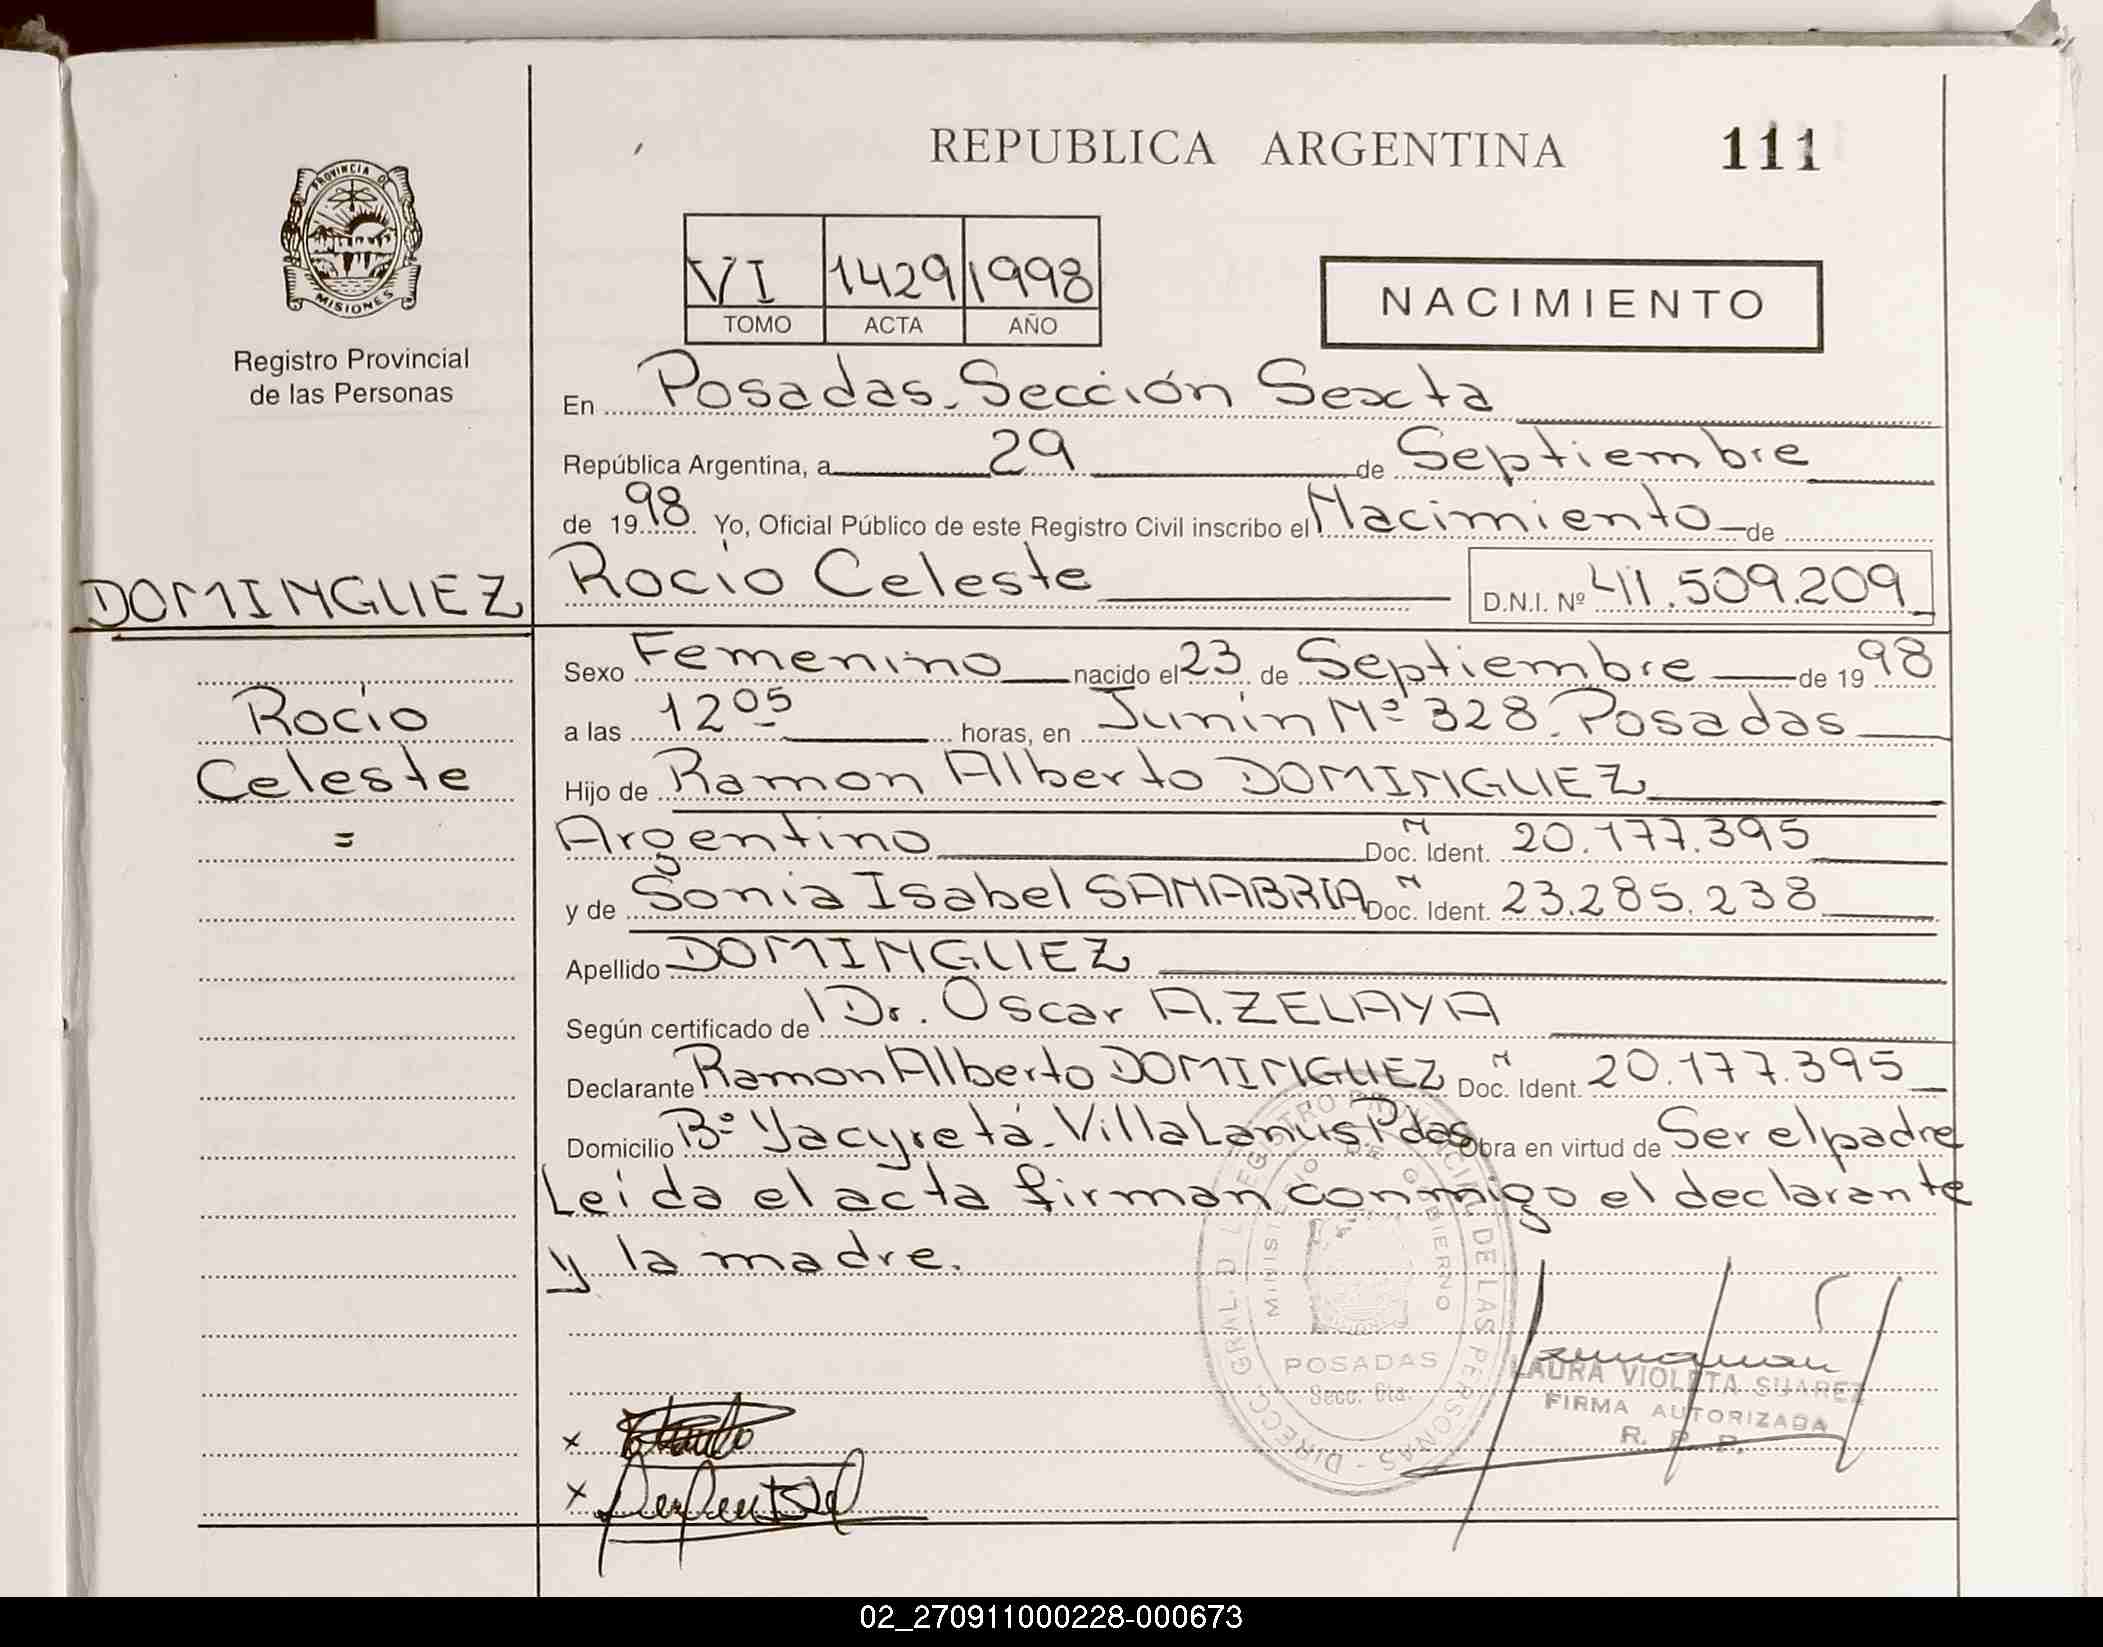 REPUBLICA ARGENTINA 111
PROVINCIA DE
MISIONES
Registro Provincial
de las Personas
VI 1429 1998
TOMO ACTA AÑO
NACIMIENTO
En Posadas. Sección Sexta
República Argentina, a 29 de Septiembre
de 1998 Yo, Oficial Público de este Registro Civil inscribo el Nacimiento de
DOMINGUEZ Rocio Celeste D.N.I. Nº 41.509.209
Sexo Femenino nacido el 23 de Septiembre de 1998
Rocio
a las 12 05 horas, en Junín Nº 328. Posadas
Celeste
Hijo de Ramon Alberto DOMINGUEZ
=
Argentino Doc. Ident. N 20.177.395
y de Sonia Isabel SANABRIA Doc. Ident. N 23.285.238
Apellido DOMINGUEZ
Según certificado de Dr. Oscar A. ZELAYA
Declarante Ramon Alberto DOMINGUEZ Doc. Ident. N 20.177.395
Domicilio Bº Yacyretá. Villa Lanús Pdas Obra en virtud de Ser el padre
Leída el acta firman conmigo el declarante
y la madre.
DIRECC. GRAL. D L REGISTRO PROVINCIAL DE LAS PERSONAS
MINISTERIO DE GOBIERNO
POSADAS
Secc. 6ta.
LAURA VIOLETA SUAREZ
FIRMA AUTORIZADA
R. P. P.
x
x
02_270911000228-000673